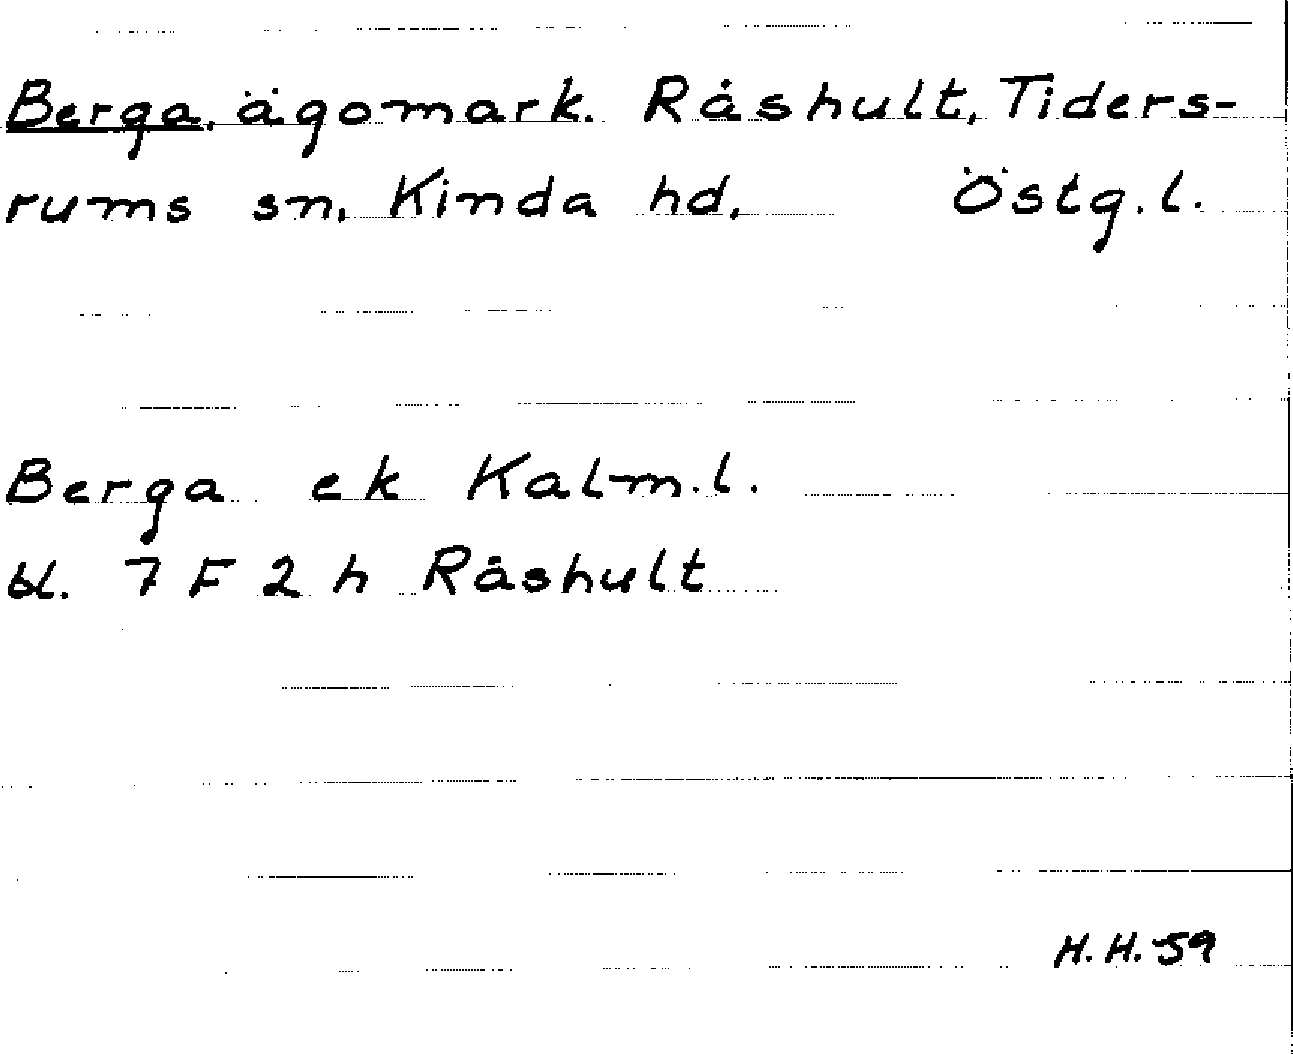 Berga, ägomark. Råshult, Tiders-
rums sn, Kinda hd, Östg.l.
Berga ek Kalm.l.
bl. 7 F 2 h Råshult
H.H.59